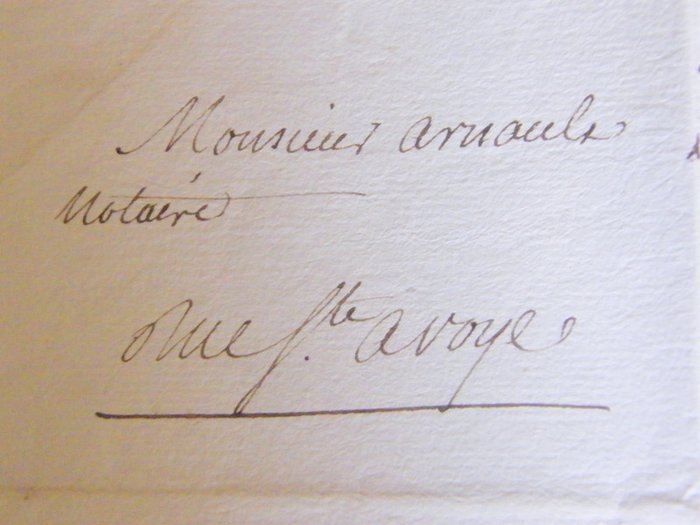 Monsieur Arnoult
Notaire
Rue S.te Avoye